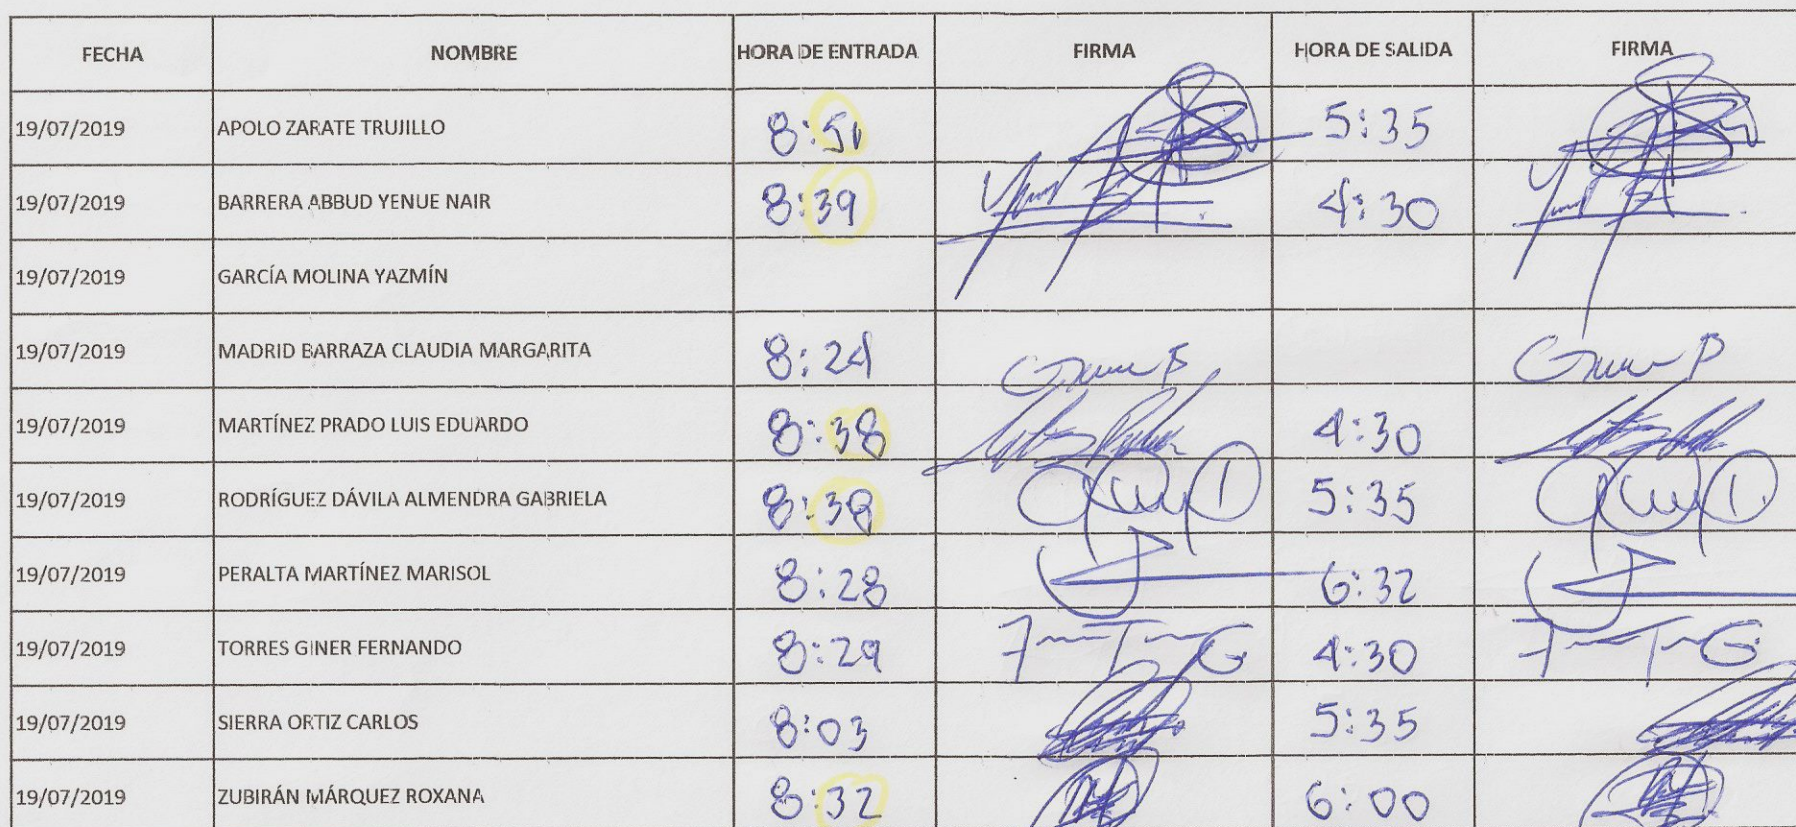 FECHA NOMBRE HORA DE ENTRADA FIRMA HORA DE SALIDA FIRMA
19/07/2019 APOLO ZARATE TRUJILLO 8:51 5:35
19/07/2019 BARRERA ABBUD YENUE NAIR 8:39 4:30
19/07/2019 GARCÍA MOLINA YAZMÍN
19/07/2019 MADRID BARRAZA CLAUDIA MARGARITA 8:24
19/07/2019 MARTÍNEZ PRADO LUIS EDUARDO 8:38 4:30
19/07/2019 RODRÍGUEZ DÁVILA ALMENDRA GABRIELA 8:38 5:35
19/07/2019 PERALTA MARTÍNEZ MARISOL 8:28 6:32
19/07/2019 TORRES GINER FERNANDO 8:29 4:30
19/07/2019 SIERRA ORTIZ CARLOS 8:03 5:35
19/07/2019 ZUBIRÁN MÁRQUEZ ROXANA 8:32 6:00